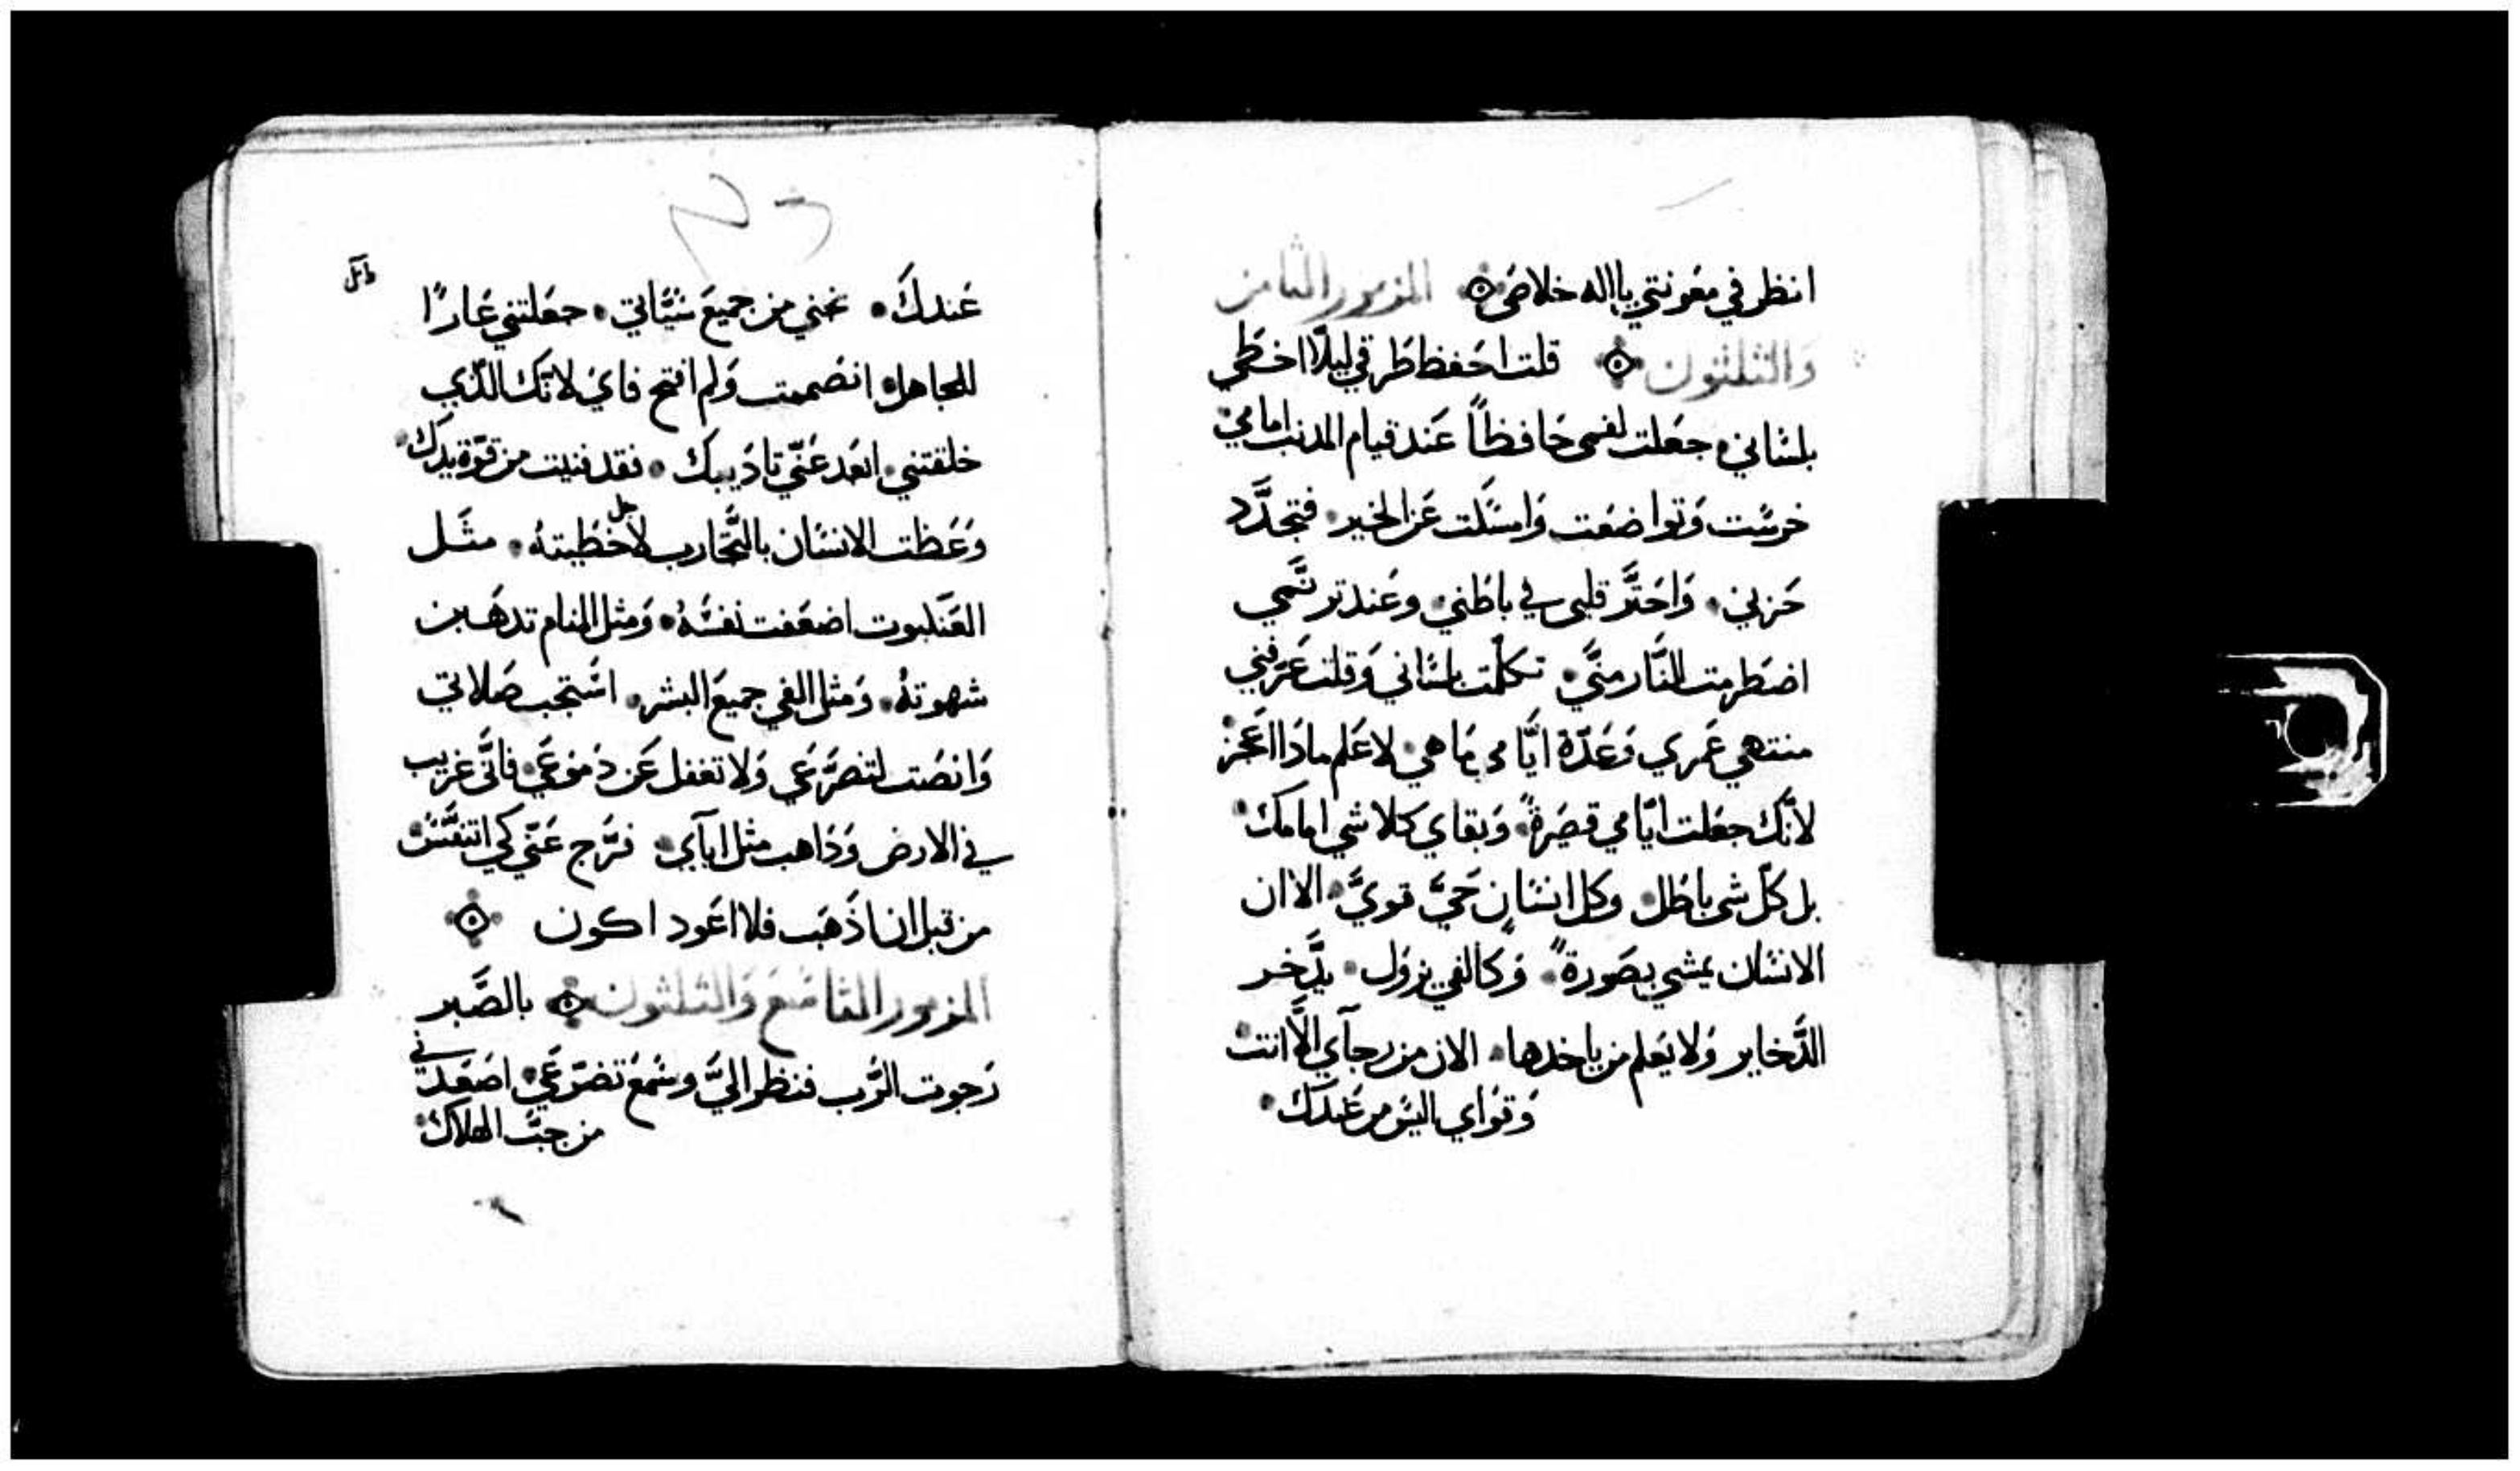 انظر في معونتي يا اله خلاصي المزمور الثامن
والثلثون قلت احفظ طرقي ليلّا اخطي
بلساني جعلت لفمي حافظاً عند قيام المدنب امامي
خرست وَتواضعت وَاسكت عَن الخير فتجدَّد
حَزني وَاحتَرَّ قلبي في باطني وعَند ترنَّمي
اضطرمت النَّار منّي تكلّمت بلساني وَقلت عَرفني
منتهي عَمري وَعَدّة ايَّامي ما هي لاعَلم مادَا اعَجز
لانّك جعَلت ايّامي قصَرةً وَبقاي كلا شي امامك
بل كلّ شي باطل وكل انسانٍ حَيَّ قويَّ الا ان
الانسان يمشي بصَورةً وَكالفي يزول يدَّخر
الدَّخاير وَلا يَعلم من ياخدها الان من رجآي الّا انت
وَقواي اليسَ من عَندك
عَندكَ نجني من جميعَ سيَّاتي جعَلتني عَارًا
للجاهل انصَممت وَلم افتح فايَ لانّك الَّذي
خلقتني ابعَد عَنّي تادَيبك فقد فنيت من قوّة يدك
وَعَظت الانسَان بالتَّجارب لاجل خَطيته مثَل
العَنكبوت اضعَفت نفسَهُ وَمثل المنام تدهَبن
شهوتهُ وَمثل الفي جميعَ البشر اسَتجب صَلاتي
وَانصَت لتضرّعَي وَلا تغفل عَن دَموعَي فانَّي غَريب
في الارض وَدَاهب مثل ابآي فرَّج عَنّي كي اتنفَّسَ
من قبل ان اذَهَب فلا اعَود اكون
المزمور التاسَع وَالثلثون بالصَّبر
رَجوت الرَّب فنظر اليَّ وسَمعَ تضرّعَي اصَعَدَني
من جبّ الهلاك